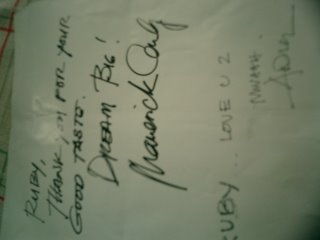 RUBY,
THANK YOU FOR YOUR
GOOD TASTE.
DREAM BIG!
Maverick
RUBY... LOVE U 2
MWAHH.